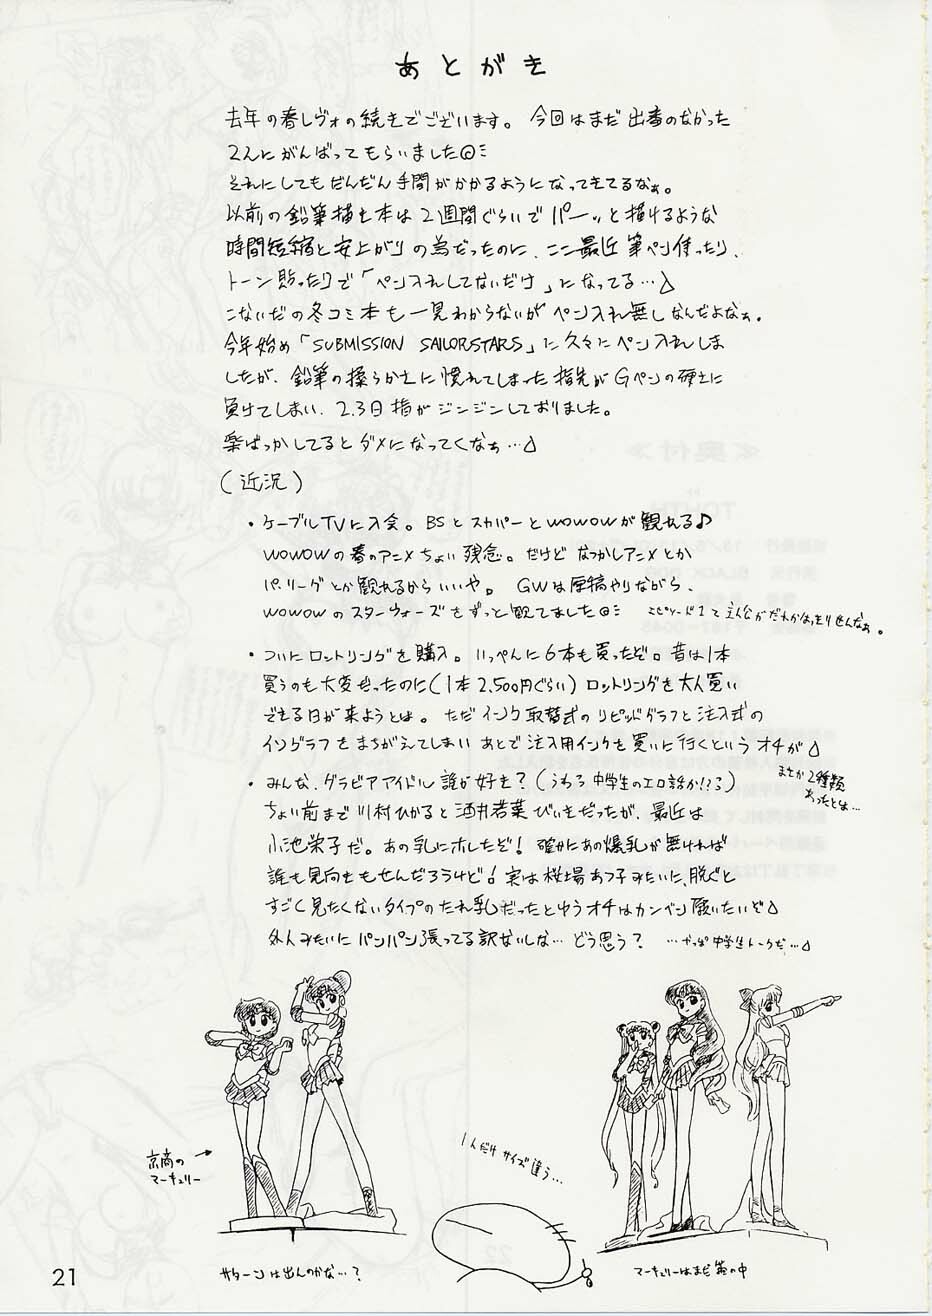 あとがき
去年の春レヴォの続きでございます。今回はまだ出番のなかった
2人にがんばってもらいました
それにしてもだんだん手間がかかるようになってきてるなぁ。
以前の鉛筆描き本は2週間ぐらいでパーッと描けるような
時間短縮と安上がりの為だったのに、ここ最近筆ペン使ったり、
トーン貼ったりで「ペン入れしてないだけ」になってる…
こないだの冬コミ本も一見わからないがペン入れ無しなんだよなぁ。
今年始め「SUBMISSION SAILORSTARS」に久々にペン入れしま
したが、鉛筆の柔らかさに慣れてしまった指先がGペンの硬さに
負けてしまい、2.3日指がジンジンしておりました。
楽ばっかしてるとダメになってくなぁ…
(近況)
・ケーブルTVに入会。BSとスカパーとWOWOWが観れる♪
WOWOWの春のアニメちょい残念。だけどなつかしアニメとか
パ・リーグとか観れるからいいや。GWは原稿やりながら、
WOWOWのスターウォーズをずっと観てました エピソード1って主人公がだれかはっきりせんなぁ。
・ついにロットリングを購入。いっぺんに6本も買ったぞ。昔は1本
買うのも大変だったのに(1本2,500円ぐらい)ロットリングを大人買い
できる日が来ようとは。ただインク取替式のラピッドグラフと注入式の
イソグラフをまちがえてしまいあとで注入用インクを買いに行くというオチが
まさか2種類
あったとは…
・みんな、グラビアアイドル誰が好き?(うわっ中学生のエロ話か!?)
ちょい前まで川村ひかると酒井若菜びいきだったが、最近は
小池栄子だ。あの乳にホレたぞ!確かにあの爆乳が無ければ
誰も見向きもせんだろうけど!実は桜場あつ子みたいに、脱ぐと
すごく見たくないタイプのたれ乳だったとゆうオチはカンベン願いたいぞ
外人みたいにパンパン張ってる訳ないしな…どう思う? …やっぱ中学生トークだ…
京商の
マーキュリー
1人だけサイズ違う…
サターンは出んのかな…?
マーキュリーはまだ箱の中
21